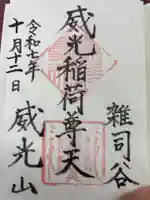 雑司ケ谷
威光稲荷尊天
威光山
令和七年
十月十二日